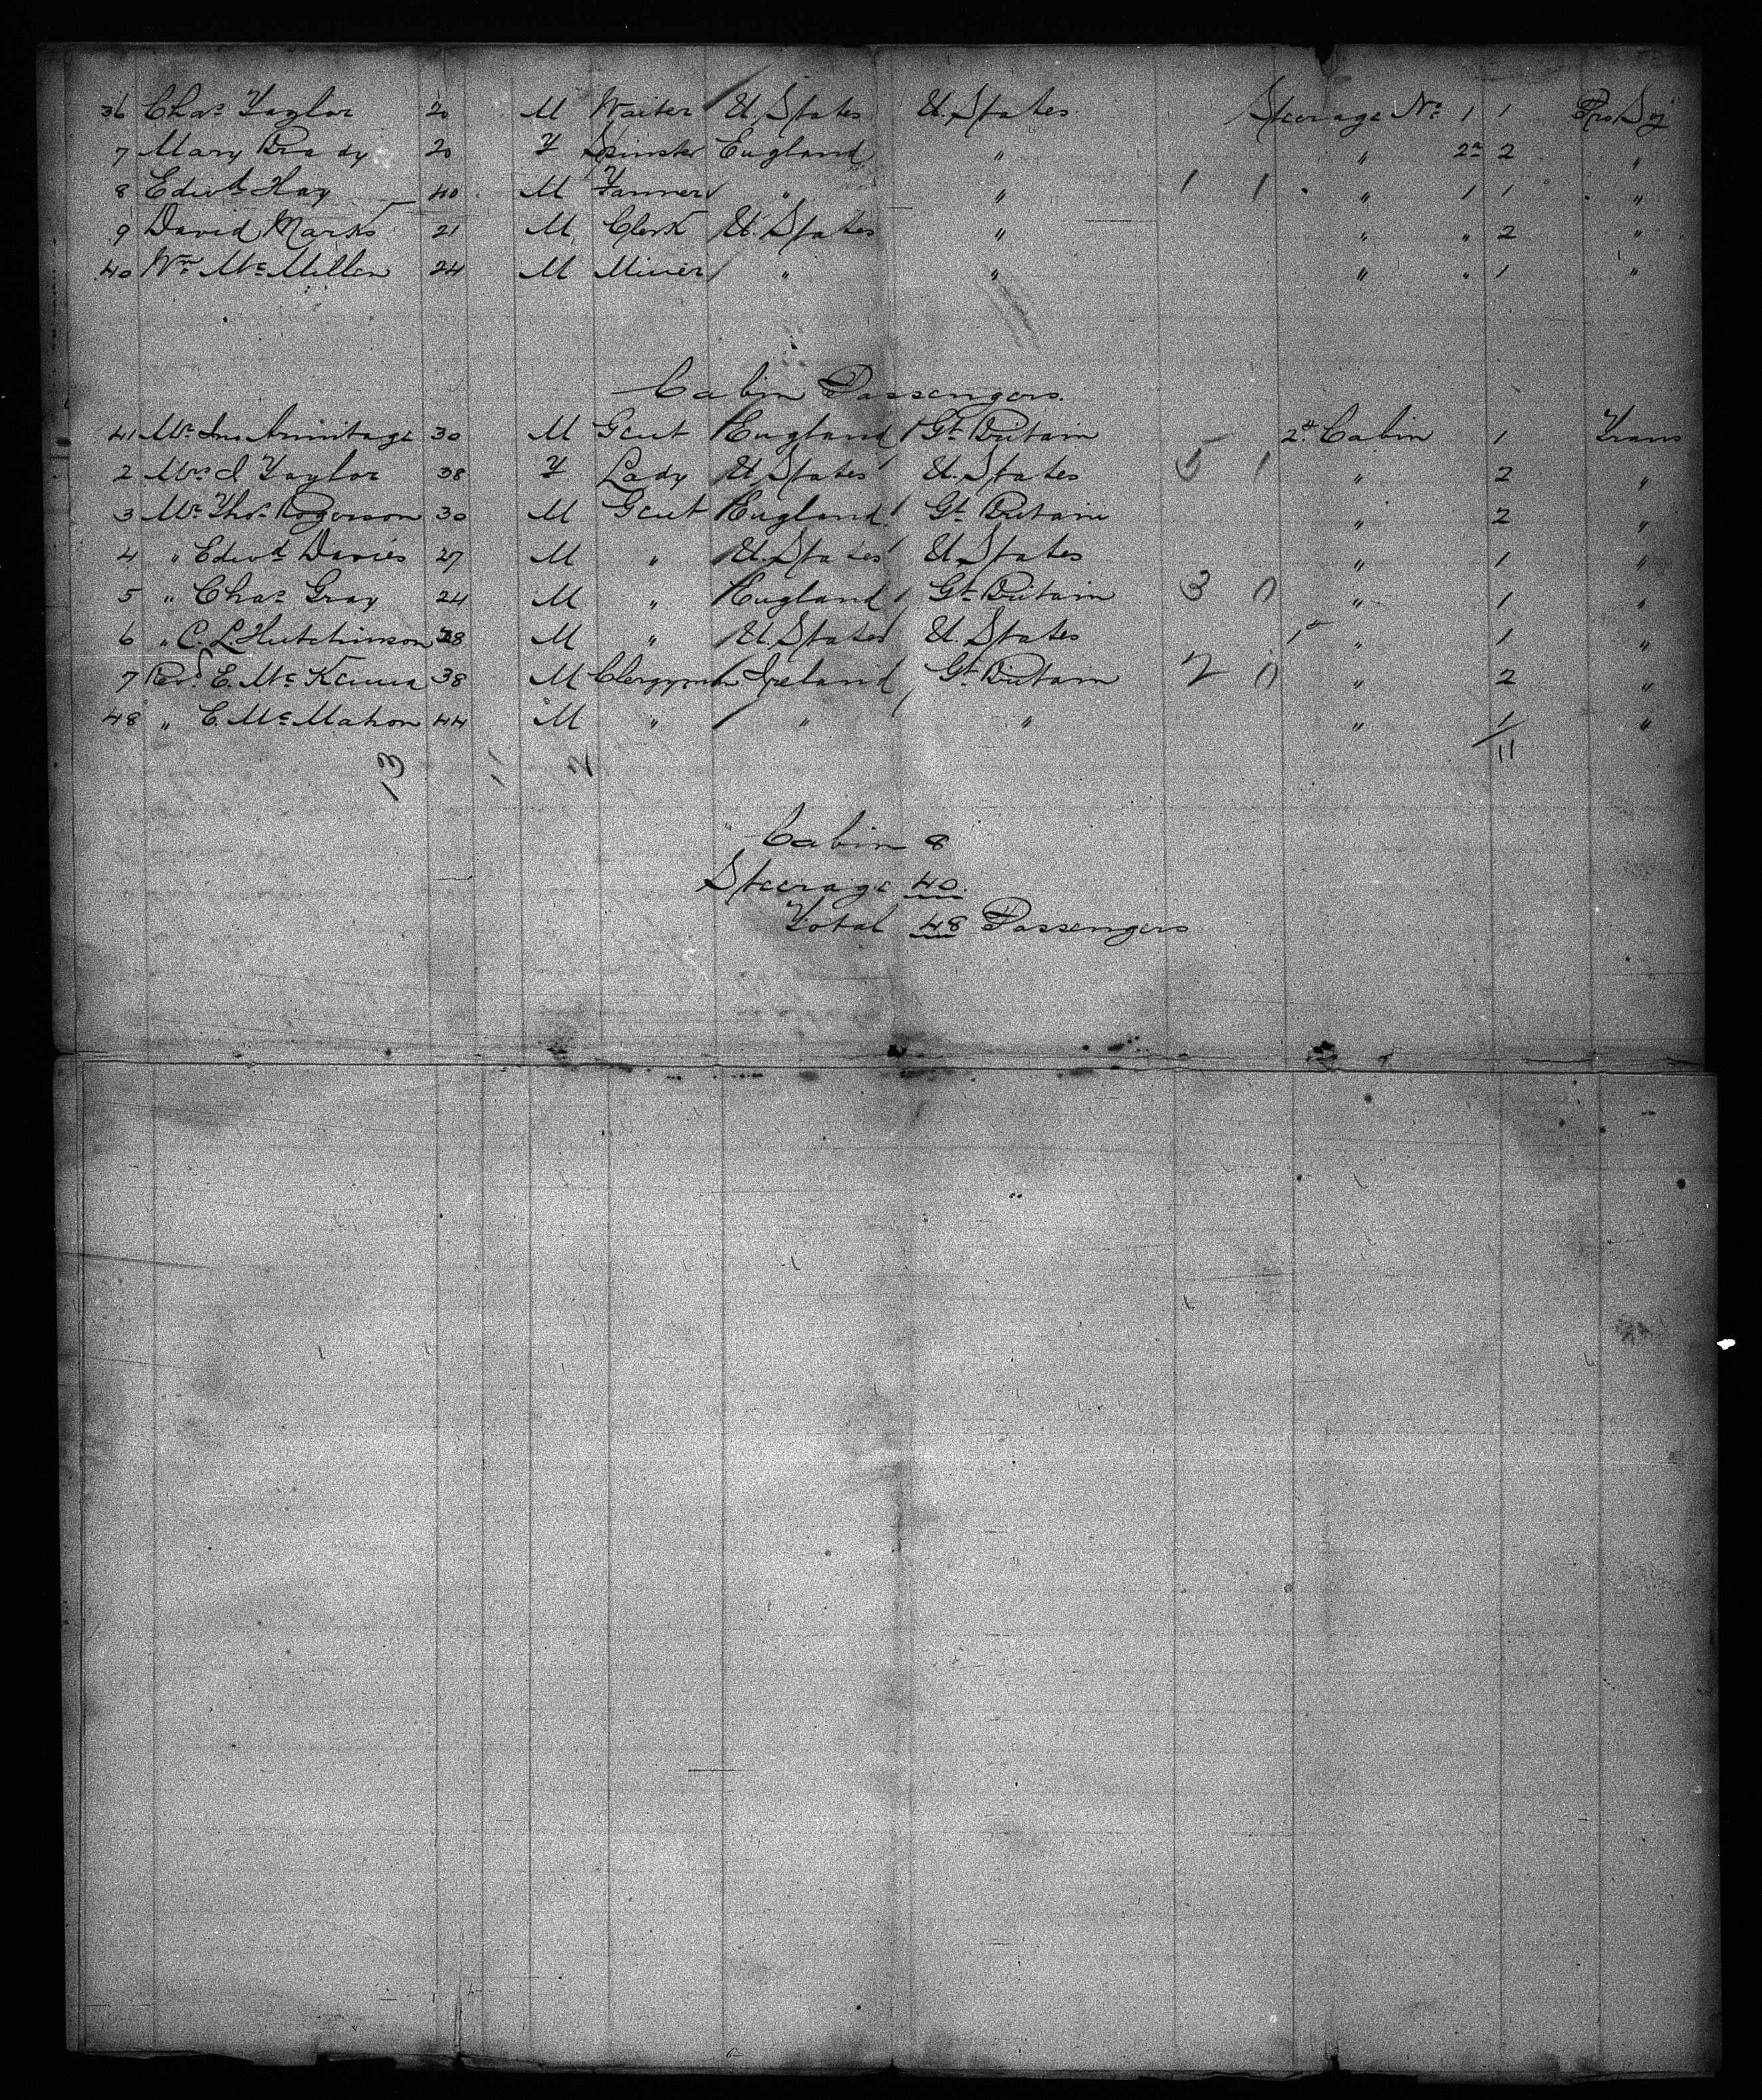 36 Chas Taylor 20 M Waiter U. States U. States Steerage No 1 1 Pro Soj
7 Mary Brady 20 F Spinster England " " 2n 2 "
8 Edwd Hay 40 M Farmer " " 1 1 " 1 1 "
9 David Marks 21 M Clerk U. States " " " 2 "
40 Wm McMillen 24 M Miner " " " " 1 "
Cabin Passengers.
41 Mr Jno Armitage 30 M Gent England Gt Britain 2d Cabin 1 Trans
2 Mrs J Taylor 38 F Lady U States U. States 5 1 " 2 "
3 Mr Thos Rogerson 30 M Gent England Gt Britain " 2 "
4 " Edwd Davies 27 M " U. States U. States " 1 "
5 " Chas Gray 24 M " England Gt Britain 3 0 " 1 "
6 " C. L. Hutchinson 28 M " U. States U. States 1st " 1 "
7 Revd E. McKenna 38 M Clergyman Ireland Gt Britain 2 0 " 2 "
48 " E. McMahon 44 M " " " " 1 "
13 11 2 11
Cabin 8
Steerage 40
Total 48 Passengers